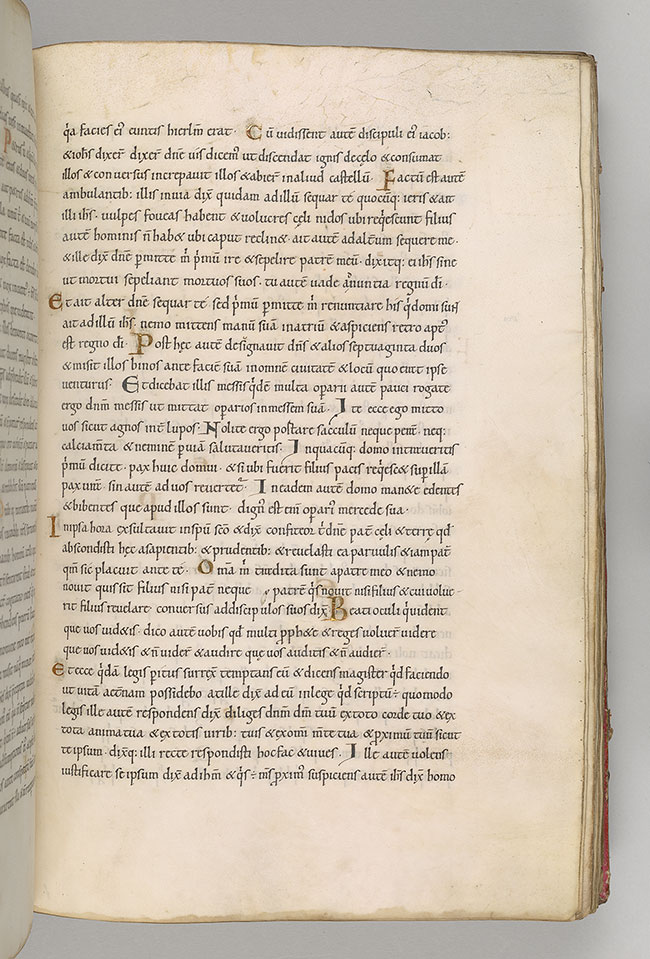 q̇a facies ei᷒ euntis hierl̄m erat· Cū uidissent autē discipuli ei᷒ iacob:
& ioh̄s dixer̄ dixer̄ dn̄e uis dicem᷒ ut discendat ignis de cęlo & consumat
illos & conuersus increpauit illos & abier̄ in aliud castellū· Factū est autē
ambulantib: illis in uia dix̄ quidam ad illū sequar te quocūq: ieris & ait
illi ih̄s· uulpes foueas habent & uolucres cęli nidos ubi req̇escunt filius
autē hominis n̄ hab& ubi caput reclin&· ait autē ad alt̄um sequere me·
& ille dix̄ dn̄e p̄mitte m̄ ṗmū ire & sepelire patrē meū· dix̄ itq: ei ih̄s sine
ut mortui sepeliant mortuos suos· tu autē uade a᷒nuntia regnū d̄i·
Et ait alter dn̄e sequar te sed ṗmū p̄mitte m̄ renuntiare his q̇ domi sun̄
ait ad illū ih̄s· nemo mittens manū suā in atriū & aspiciens retro apt᷒
est regno d̄i· Post hęc autē designauit dn̄s & alios septuaginta duos
& misit illos binos ante faciē suā in omnē ciuitatē & locū quo erat ipse
uenturus· Et dicebat illis messis q̇dē multa operarii autē pauci rogate
ergo dn̄m messis ut mittat operarios in messem suā· Ite ecce ego mitto
uos sicut agnos int̄ lupos· Nolite ergo portare sacculū neque perā· neq:
calciam̄ta & neminē p̄ uiā salutaueritis· In quacūq: domo intraueritis
ṗmū dicite· pax huic domui· & si ubi fuerit filius pacis req̇esc& sup̄ illā
pax ur̄a· sin autē ad uos reuertet᷒· In eadem autē domo man&e edentes
& bibentes que apud illos sunt· dign᷒ est enī operari᷒ mercede sua·
In ipsa hora exsultauit in sp̄u sc̄o & dix̄ confiteor t̄ dn̄e pat̄ cęli & terrę qd̄
abscondisti hęc a sapientib: & prudentib: & reuelasti ea paruulis & iam pat̄
qm̄ sic placuit ante te· Om̄a m̄ tradita sunt a patre meo & nemo
nouit quis sit filius nisi pat̄ neque patrē q̇s nouit nisi filius & cui uolue-
rit filius reuelare· conuersus ad discipulos suos dix̄ Beati oculi q̇ uident
que uos uid&is· dico autē uobis qd̄ multi p̄ph&e & reges uoluer̄ uidere
que uos uid&is & n̄ uider̄ & audire que uos auditis & n̄ audier̄·
Et ecce q̇dā legis pitus surrex̄ temptans eū & dicens magister q̇d faciendo
ut uitā aet̄nam possidebo at ille dix̄ ad eū in lege q̇d scriptū ÷ quomodo
legis ille autē respondens dix̄ diliges dn̄m dm̄ tuū ex toto corde tuo & ex
tota anima tua & ex totis uirib: tuis & ex om̄i m̄te tua & p̄ximū tuū sicut
te ipsum· dixq: illi recte respondisti hoc fac & uiues· Ille autē uolens
iustificare se ipsum dix̄ ad ih̄m & q̇s ÷ m̄s p̄xim᷒ suspiciens autē ih̄s dix̄ homo